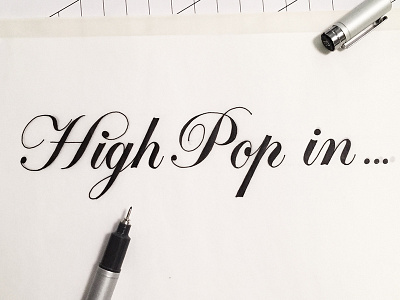 High Pop in...